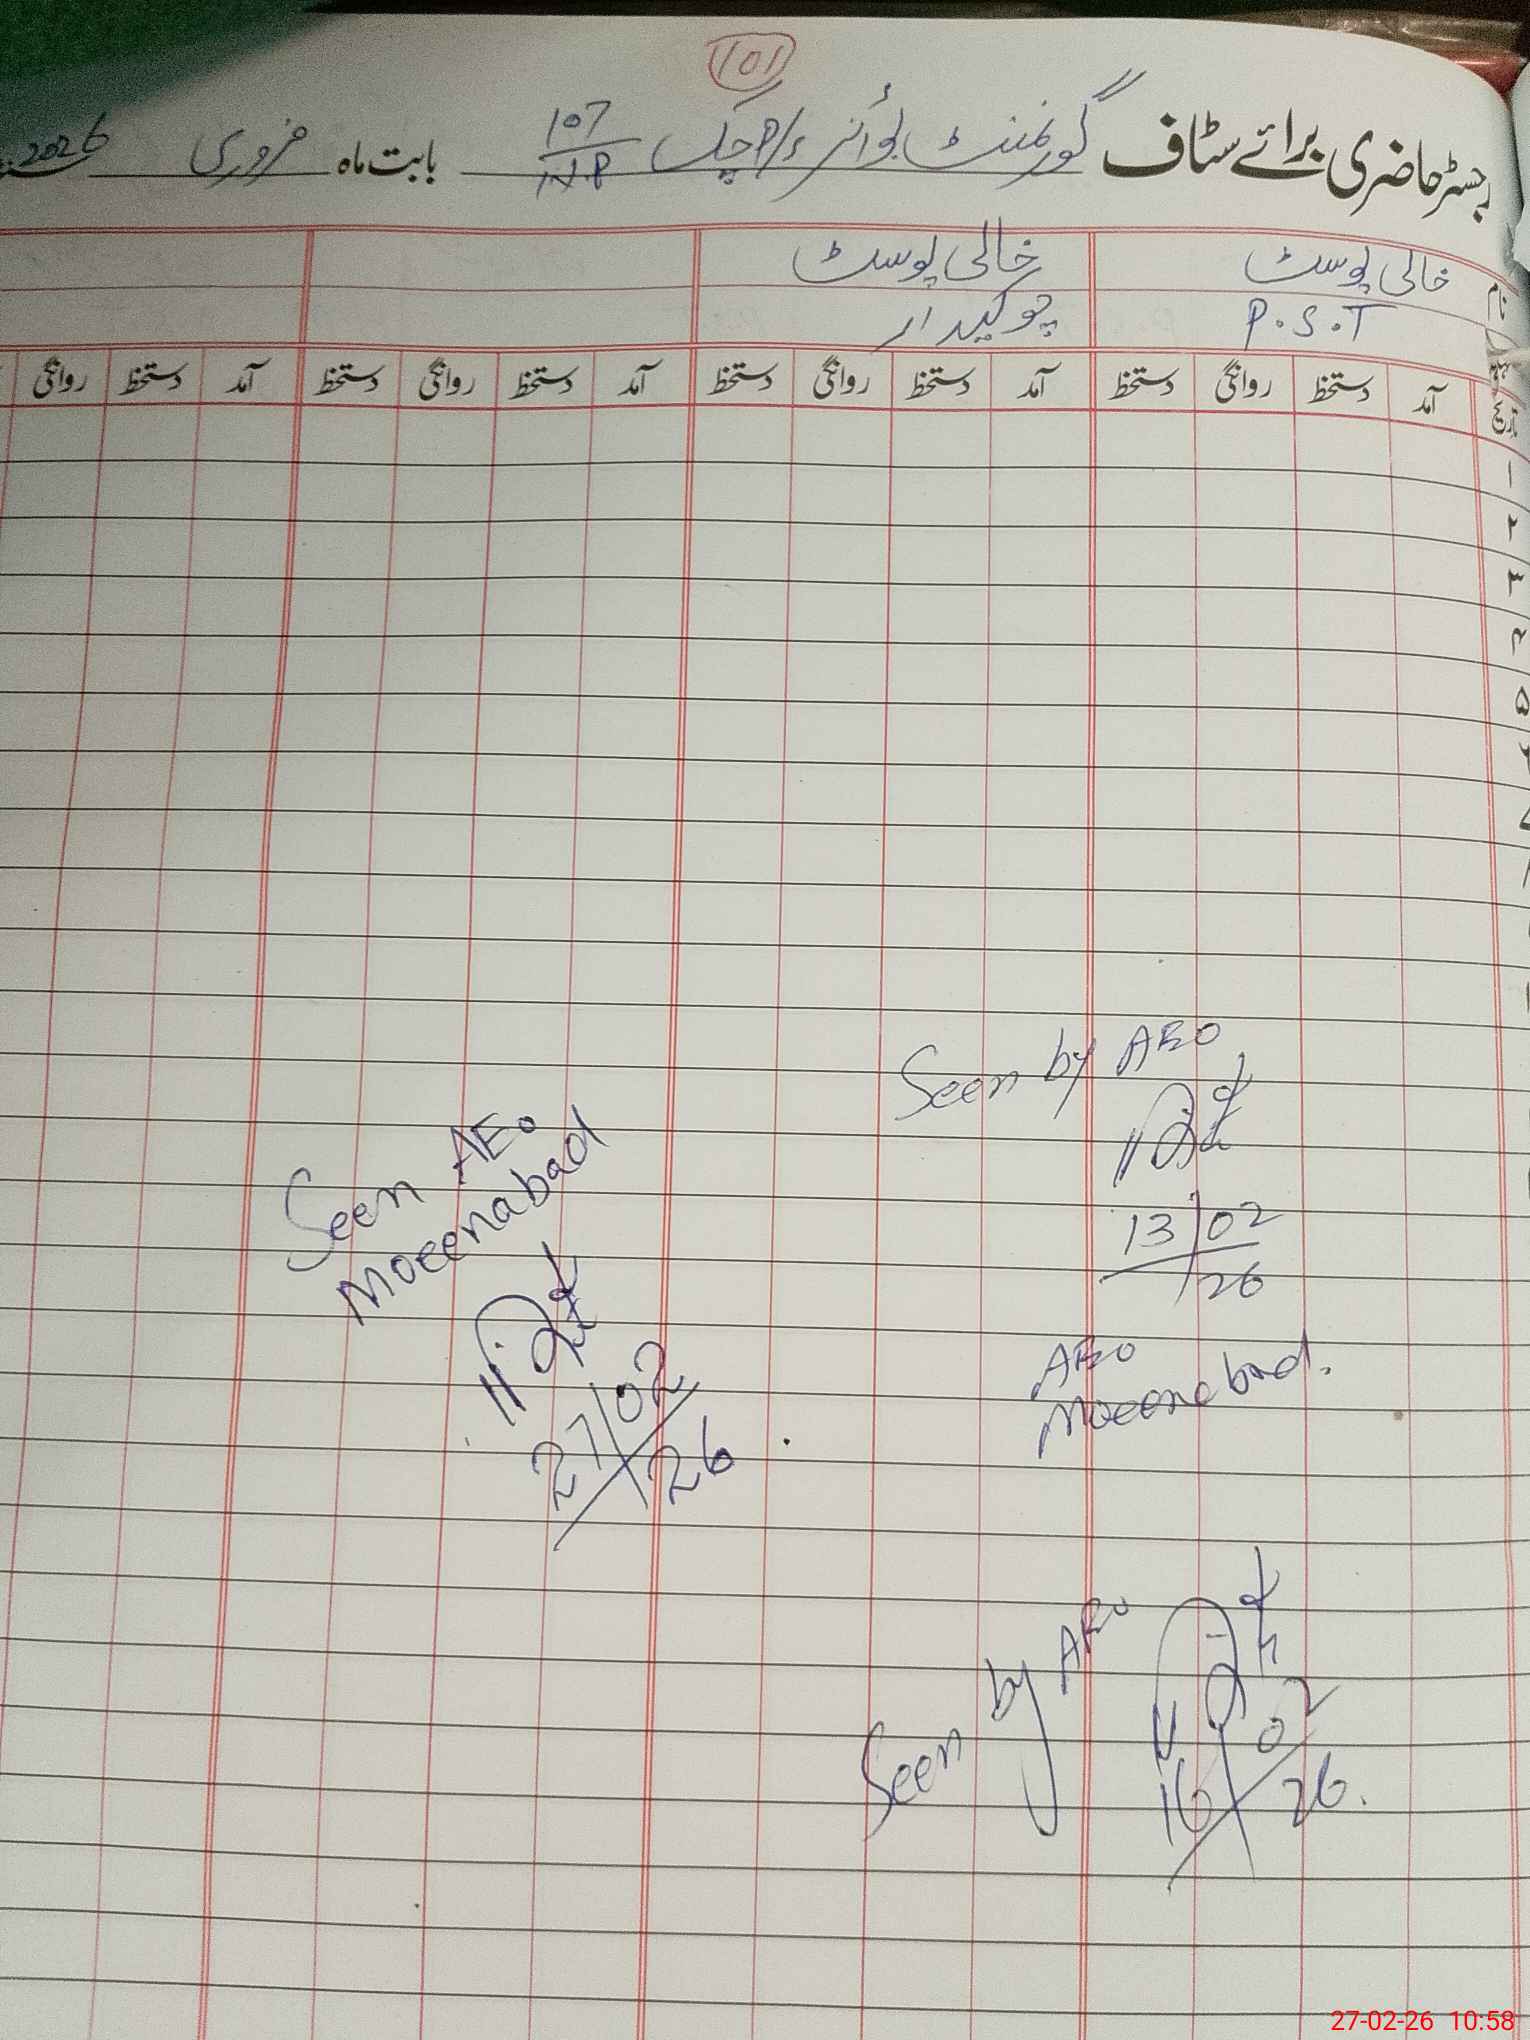 101
رجسٹر حاضری برائے سٹاف گورنمنٹ بوائز P/S چک 107/N.P بابت ماہ فروری 2026
نام خالی پوسٹ خالی پوسٹ
P.S.T چوکیدار
تاریخ آمد دستخط روانگی دستخط آمد دستخط روانگی دستخط آمد دستخط روانگی دستخط آمد دستخط روانگی
۱
۲
۳
۴
۵
۶
۷
Seen by AEO
13/02/26
AEO
Moeenabad.
Seen AEO
Moeenabad
27/02/26
Seen by AEO
16/02/26.
27-02-26 10:58